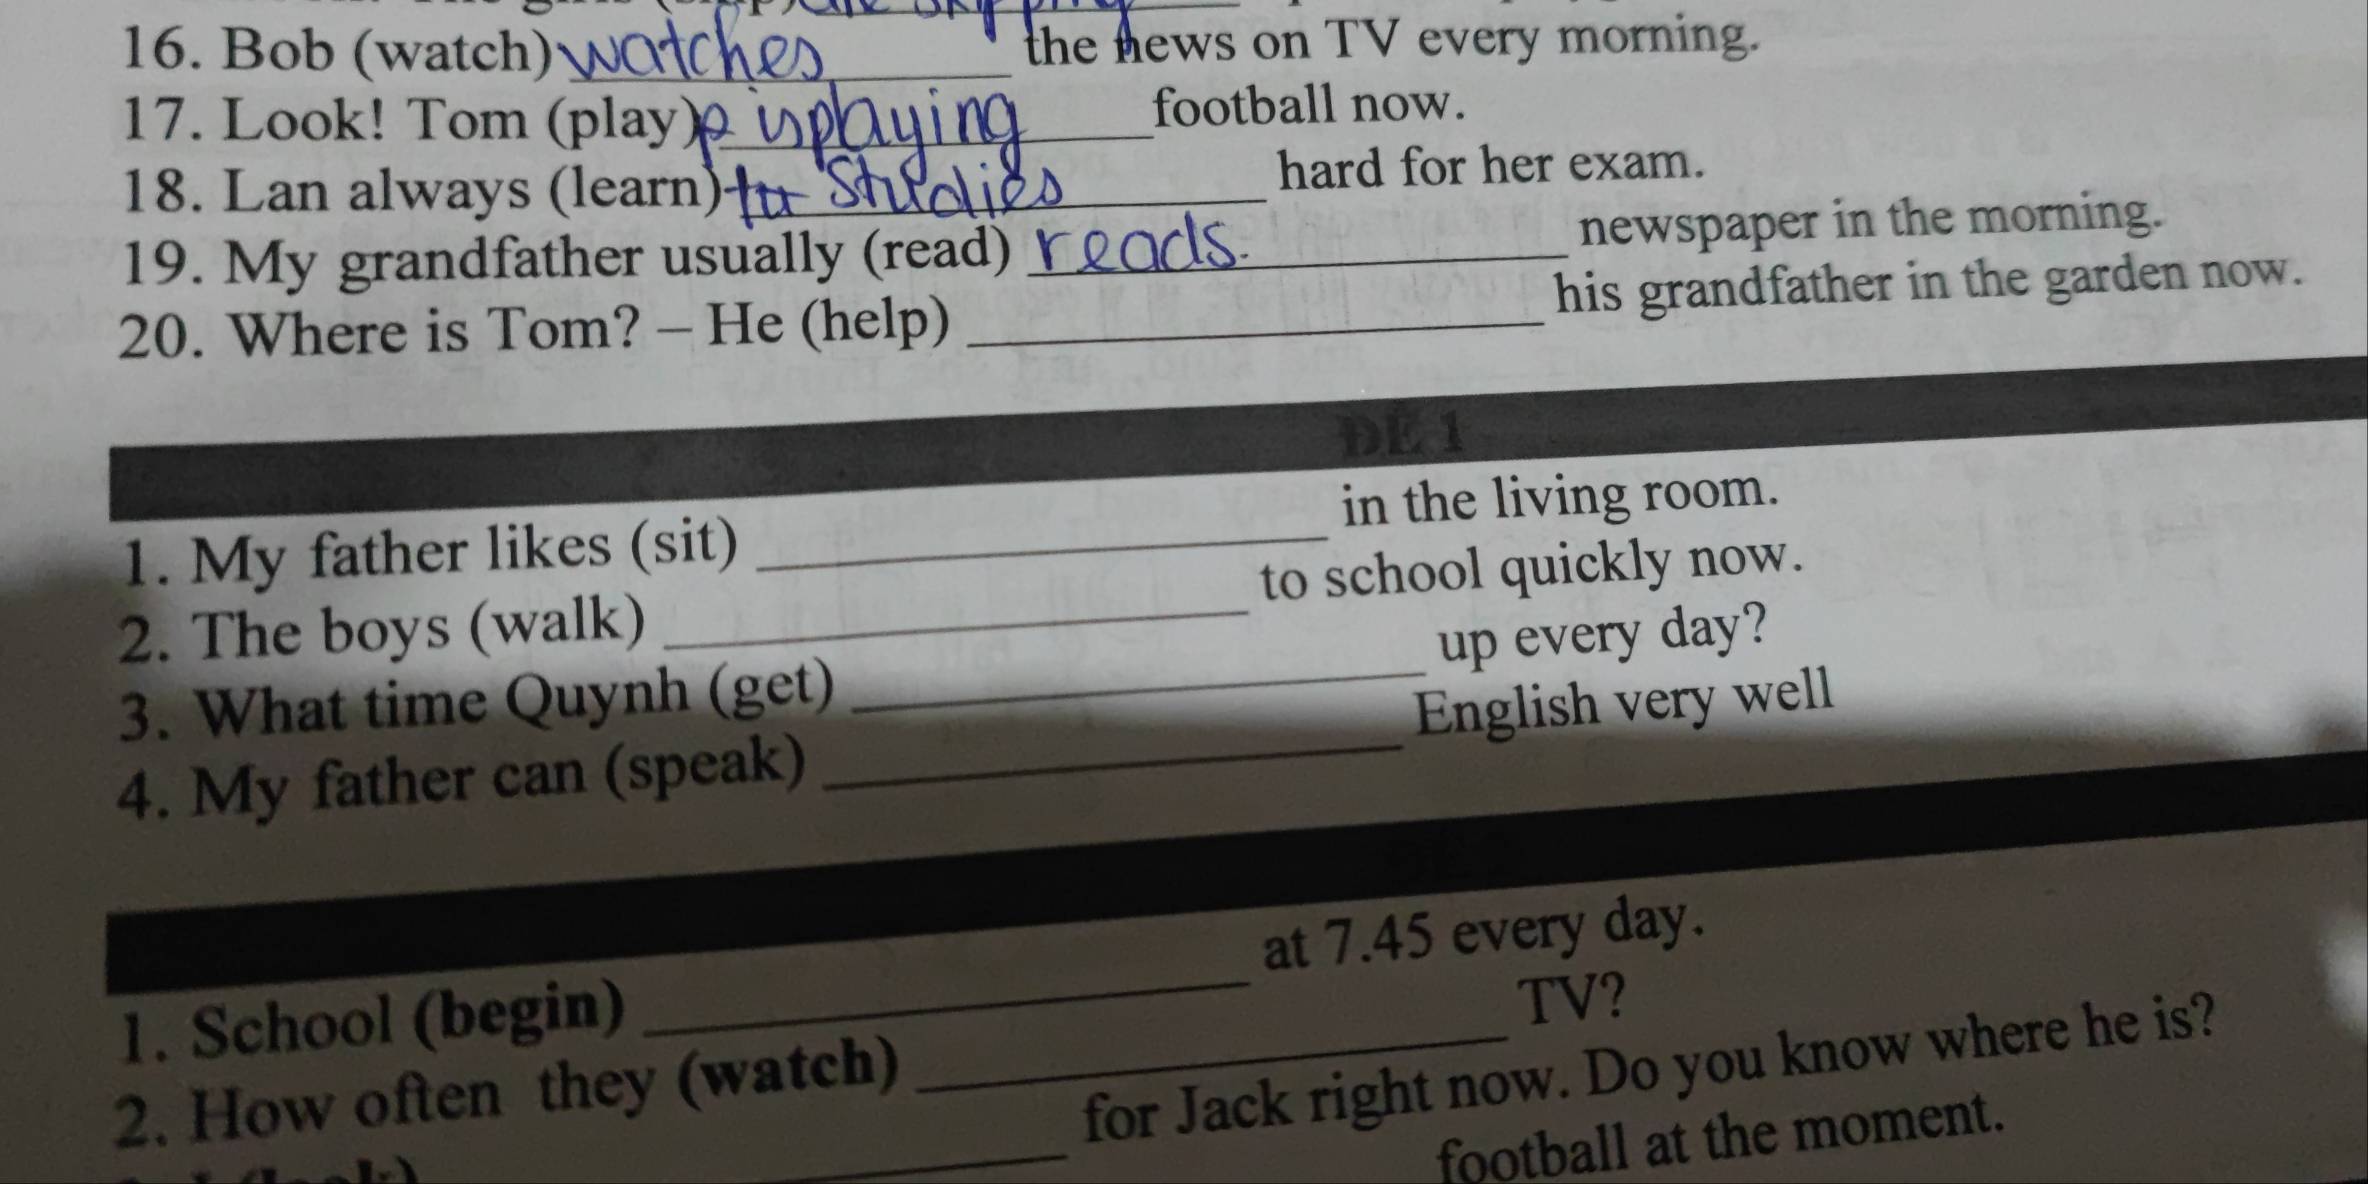 16. Bob (watch) watches the news on TV every morning.
17. Look! Tom (play) is playing football now.
18. Lan always (learn) studies hard for her exam.
19. My grandfather usually (read) reads. newspaper in the morning.
20. Where is Tom? – He (help) ____ his grandfather in the garden now.
ĐỀ 1
1. My father likes (sit) ____ in the living room.
2. The boys (walk) ____ to school quickly now.
3. What time Quynh (get) ____ up every day?
4. My father can (speak) ____ English very well
1. School (begin) ____ at 7.45 every day.
2. How often they (watch) ____ TV?
for Jack right now. Do you know where he is?
football at the moment.